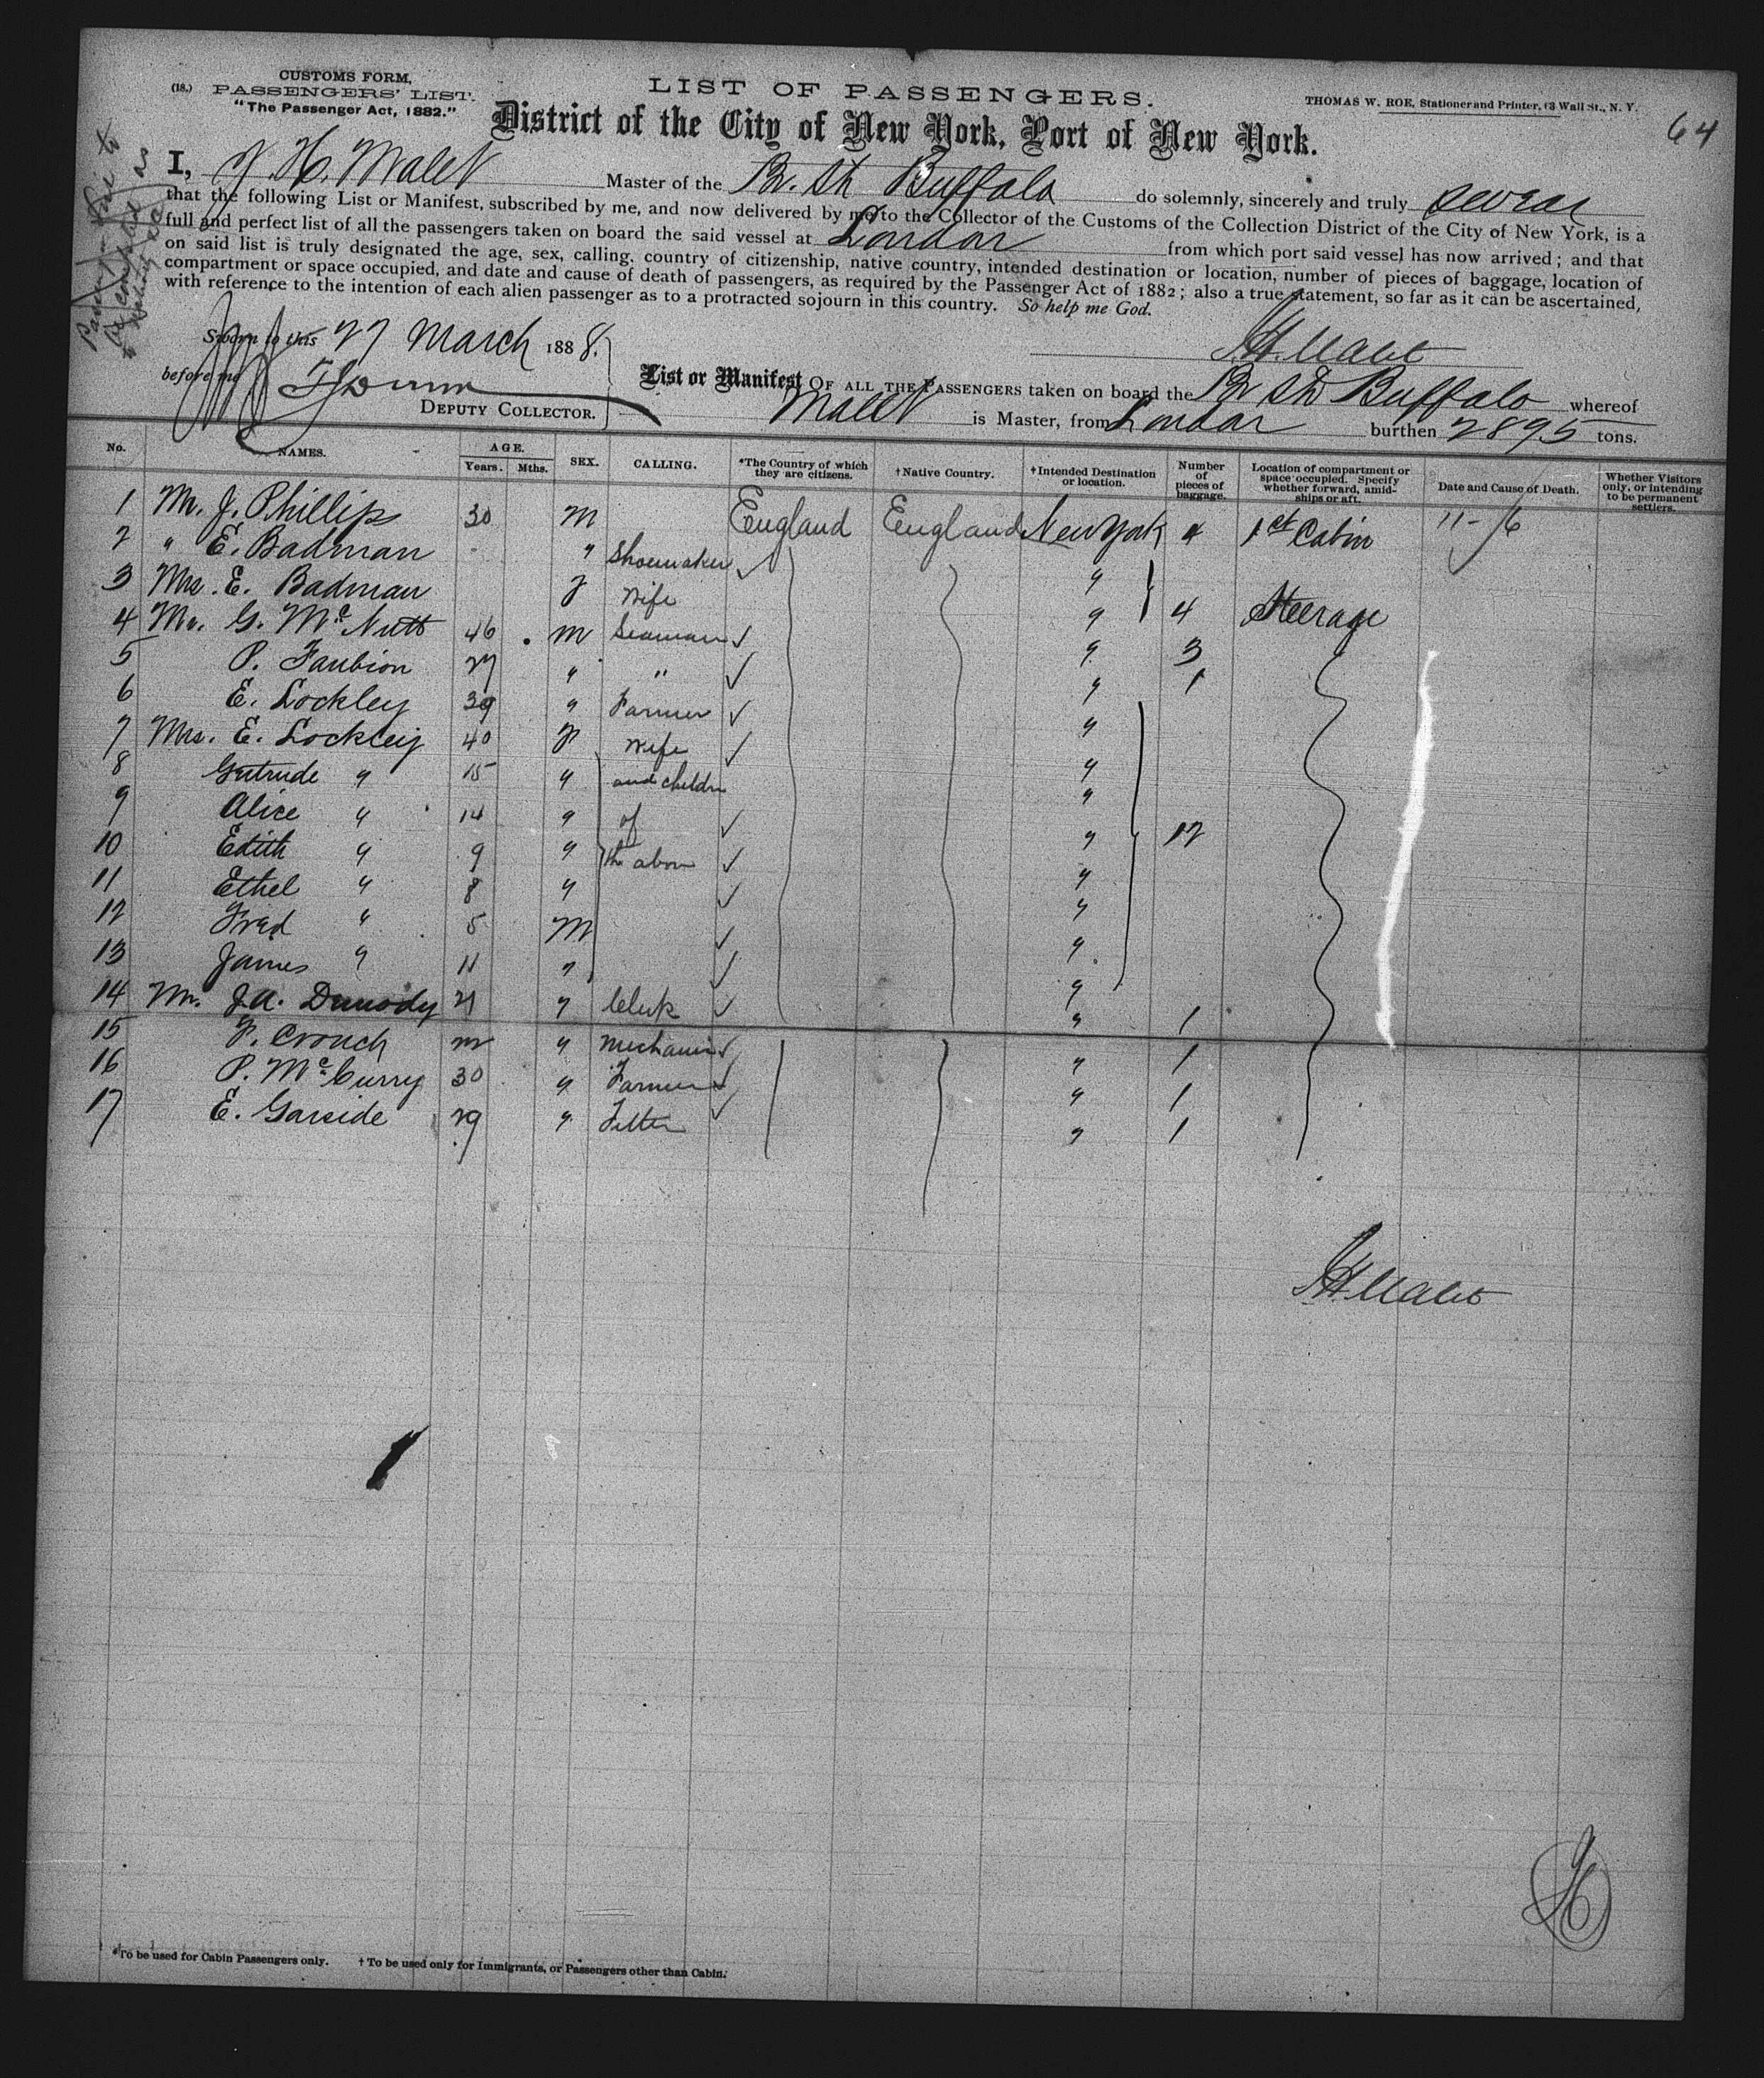 (18.) CUSTOMS FORM,
PASSENGERS' LIST.
"The Passenger Act, 1882."
LIST OF PASSENGERS.
THOMAS W. ROE, Stationer and Printer, 13 Wall St., N. Y.
64
District of the City of New York, Port of New York.
I, J. H. Malet Master of the Br. St. Buffalo do solemnly, sincerely and truly swear
that the following List or Manifest, subscribed by me, and now delivered by me to the Collector of the Customs of the Collection District of the City of New York, is a
full and perfect list of all the passengers taken on board the said vessel at London from which port said vessel has now arrived; and that
on said list is truly designated the age, sex, calling, country of citizenship, native country, intended destination or location, number of pieces of baggage, location of
compartment or space occupied, and date and cause of death of passengers, as required by the Passenger Act of 1882; also a true statement, so far as it can be ascertained,
with reference to the intention of each alien passenger as to a protracted sojourn in this country. So help me God.
Sworn to this 27 March 1888.
J H Malet
before me
DEPUTY COLLECTOR.
List or Manifest OF ALL THE PASSENGERS taken on board the Br St Buffalo whereof
Malet is Master, from London burthen 2895 tons.
No. NAMES. AGE. Years. Mths. SEX. CALLING. *The Country of which they are citizens. †Native Country. †Intended Destination or location. Number of pieces of baggage. Location of compartment or space occupied. Specify whether forward, amidships or aft. Date and Cause of Death. Whether Visitors only, or intending to be permanent settlers.
1 Mr. J. Phillips 30 M England England New York 4 1st Cabin 11-/6
2 " E. Badman " Shoemaker ✓ "
3 Mrs. E. Badman F Wife " 4 Steerage
4 Mr. G. McNutt 46 M Seaman ✓ " 3
5 P. Faubion 27 " " ✓ " 1
6 E. Lockley 39 " Farmer ✓ "
7 Mrs. E. Lockley 40 F Wife ✓ "
8 Gertrude " 15 " and children "
9 Alice " 14 " of ✓ " 12
10 Edith " 9 " the above ✓ "
11 Ethel " 8 " ✓ "
12 Fred " 5 M ✓ "
13 James " 11 " ✓ "
14 Mr. J.A. Dunody 21 " Clerk ✓ " 1
15 F. Crouch 22 " Mechanic ✓ " 1
16 P. McCurry 30 " Farmer ✓ " 1
17 E. Garside 29 " Fitter ✓ " 1
J H Malet
*To be used for Cabin Passengers only. †To be used only for Immigrants, or Passengers other than Cabin.